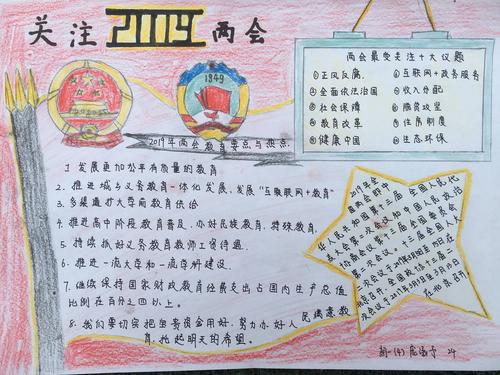 关注2019两会
1949
2019年两会教育要点与热点
1.发展更加公平有质量的教育
2.推进城乡义务教育一体化发展,发展"互联网+教育"
3.多渠道扩大学前教育供给
4.推进高中阶段教育普及,办好民族教育,特殊教育,
5.持续抓好义务教育教师工资待遇.
6.推进一流大学和一流学科建设.
7.继续保持国家财政教育经费支出占国内生产总值
比例在百分之四以上。
8.我们要切实把宝贵资金用好,努力办好人
民满意教
育,托起明天的希望。
两会最受关注十大议题
①正风反腐.
②全面依法治国
③社会保障
④教育改革
⑤健康中国
⑥互联网+政务服务
⑦收入分配
⑧脱贫攻坚
⑨住房制度
⑩生态环保
2019年全
国两会即中
华人民共和国第十三届全国人民代
表大会第二次会议和中国人民政治
协商会议第十三届全国委员会
第二次会议。十三届全国人大
二次会议于2019年3月5日
在北京召开,全国政协十三届二
次会议于2019年3月3日
在北京召开.
初一(4)
24